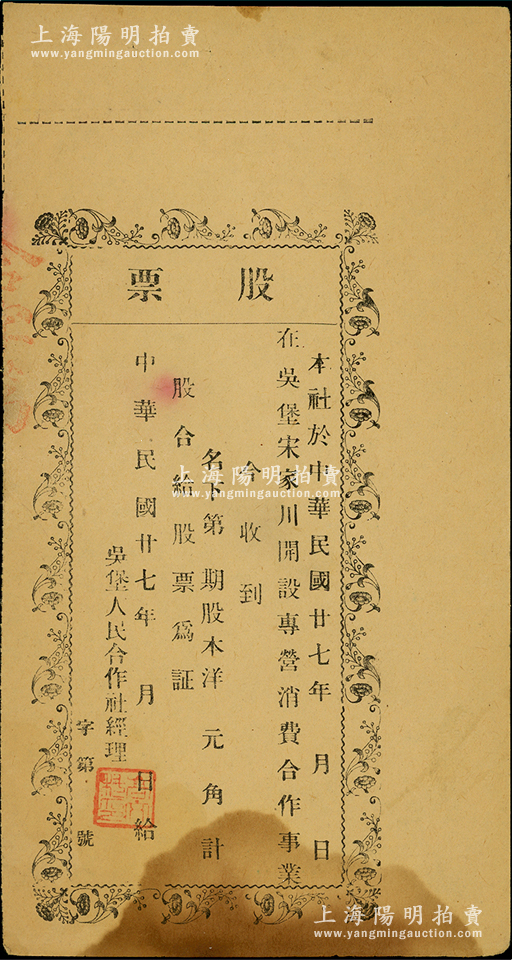 上海陽明拍賣
www.yangmingauction.com
股票
本社於中華民國廿七年 月 日
在吳堡宋家川開設專營消費合作事業
今收到
名下第 期股本洋 元 角計
股合給股票爲証
中華民國廿七年 月 日給
吳堡人民合作社經理
字第 號
上海陽明拍賣
www.yangmingauction.com
上海陽明拍賣
www.yangmingauction.com